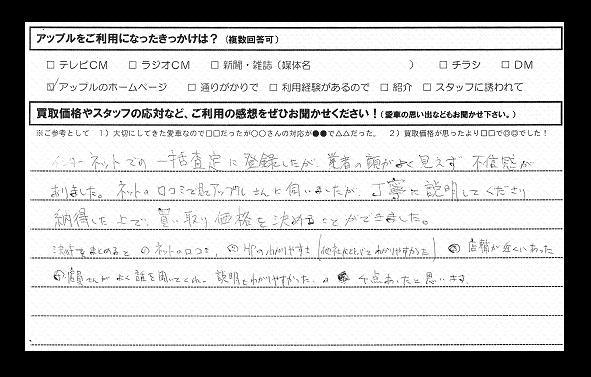 アップルをご利用になったきっかけは？（複数回答可）
□ テレビCM □ ラジオCM □ 新聞・雑誌（媒体名 ） □ チラシ □ DM
☑ アップルのホームページ □ 通りがかりで □ 利用経験があるので □ 紹介 □ スタッフに誘われて
買取価格やスタッフの応対など、ご利用の感想をぜひお聞かせください！（愛車の思い出などもお聞かせ下さい。）
※ご参考として 1）大切にしてきた愛車なので□□だったが○○さんの対応が●●で△△だった。 2）買取価格が思ったより□□で◎◎でした！
インターネットでの一括査定に登録したが、業者の顔がよく見えず不信感が
ありました。ネットの口コミで アップルさんと伺いましたが、丁寧に説明してくださり
納得した上で、買い取り価格を決めることができました。
まとめると ①ネットの口コミ、②HPのわかりやすさ（他社とくらべてわかりやすかった）③店舗が近くにあった
④店員さんがよく話を聞いてくれ、説明もわかりやすかった。の4点あったと思います。